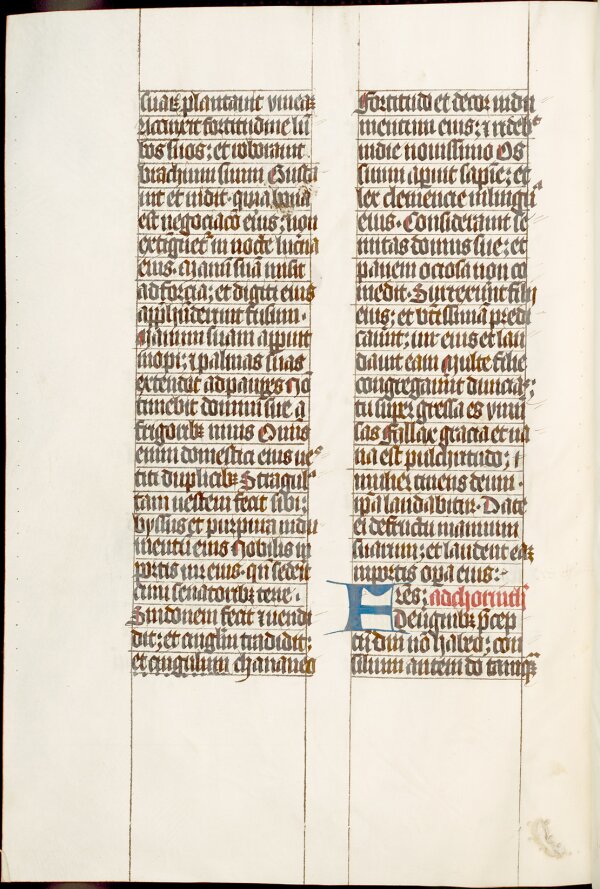 suaꝝ plantauit vineā
Accinxit fortitudine lū
bos suos; et roborauit
brachium suum Gusta
uit et uidit · quia bona
est negociacō eius; non
extiguetᷣ in nocte lucīa
eius · Manū suā misit
ad forcia; et digiti eius
apphenderunt fusum ·
Manum suam apuit
inopi; ⁊ palmas suas
extendit ad paupes Nō
timebit domui sue a
frigoribꝫ niuis Omīs
enim domestici eius ue
titi duplicibꝫ Stragul
tam uestem fecit sibi;
byssus et purpura indu
mentū eius Nobilis ī
portis uir eius · qn̄ sedeīt
cum senatoribꝫ terre ·
Sindonem fecit ⁊ uendi
dit; et cinglm̄ tradidit;
et cingulum chananeo
Fortitudo et decor indu
mentum eius; ⁊ rideb
in die nouissimo Os
suum apuit sapīe; et
lex clemencie in lingua
eius · Considerauit se
mitas domus sue; et
panem ociosa non co
medit · Surrexerūt filii
eius; et btīssimā predi
cauīt; uir eius et lau
dauit eam Multe filie
congregauīt diuicias;
tu super gressa es vniū
sas Fallax gracia et ua
na est pulchritudo; ⁊
mulier timens deum ·
ipā laudabitur · Date
ei de fructu manuum
suarum; et laudent eā
in portis opa eius:
Fres; ad chorinth
De uīginibꝫ p̄cep
tū dm̄i nō habeo; con
silium autem do tamqꝫ